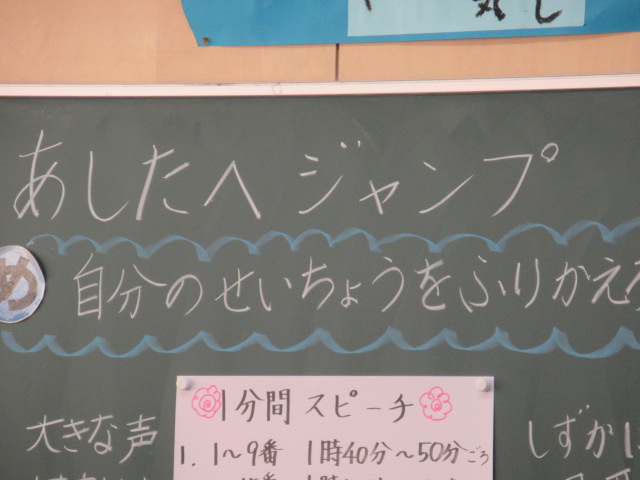 気し
あしたへ ジャンプ
め 自分のせいちょうをふりかえろ
1分間 スピーチ
大きな声
1. 1～9番 1時40分～50分ごろ
しずかに